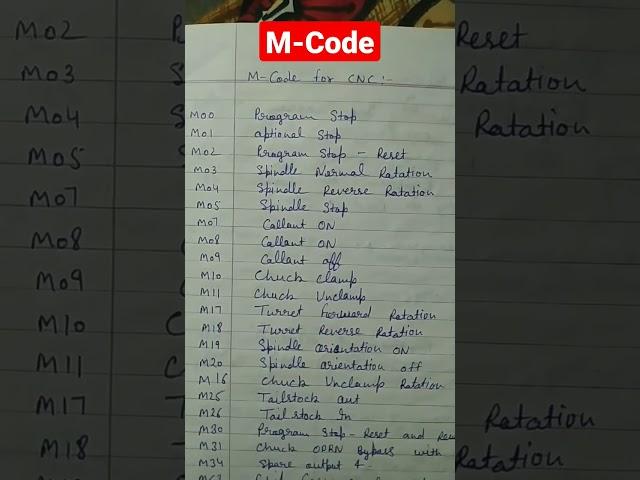 M-Code
M-Code for CNC:-
M00 Program Stop
M01 aptional Stop
M02 Program Stop - Reset
M03 Spindle Normal Ratation
M04 Spindle Reverse Ratation
M05 Spindle Stop
M07 Callant ON
M08 Callant ON
M09 Callant off
M10 Chuck clamp
M11 Chuck Unclamp
M17 Turret forward Ratation
M18 Turret Reverse Ratation
M19 Spindle arientation ON
M20 Spindle arientation off
M16 Chuck Unclamp Ratation
M25 Tailstock aut
M26 Tailstock In
M30 Program Stop - Reset and
M31 Chuck OPRN Bypass with
M34 Spare output 4-
M02 Reset
M03 Ratation
M04 Ratation
M05
M07
M08
M09
M10
M11
M17 Ratation
M18 Ratation